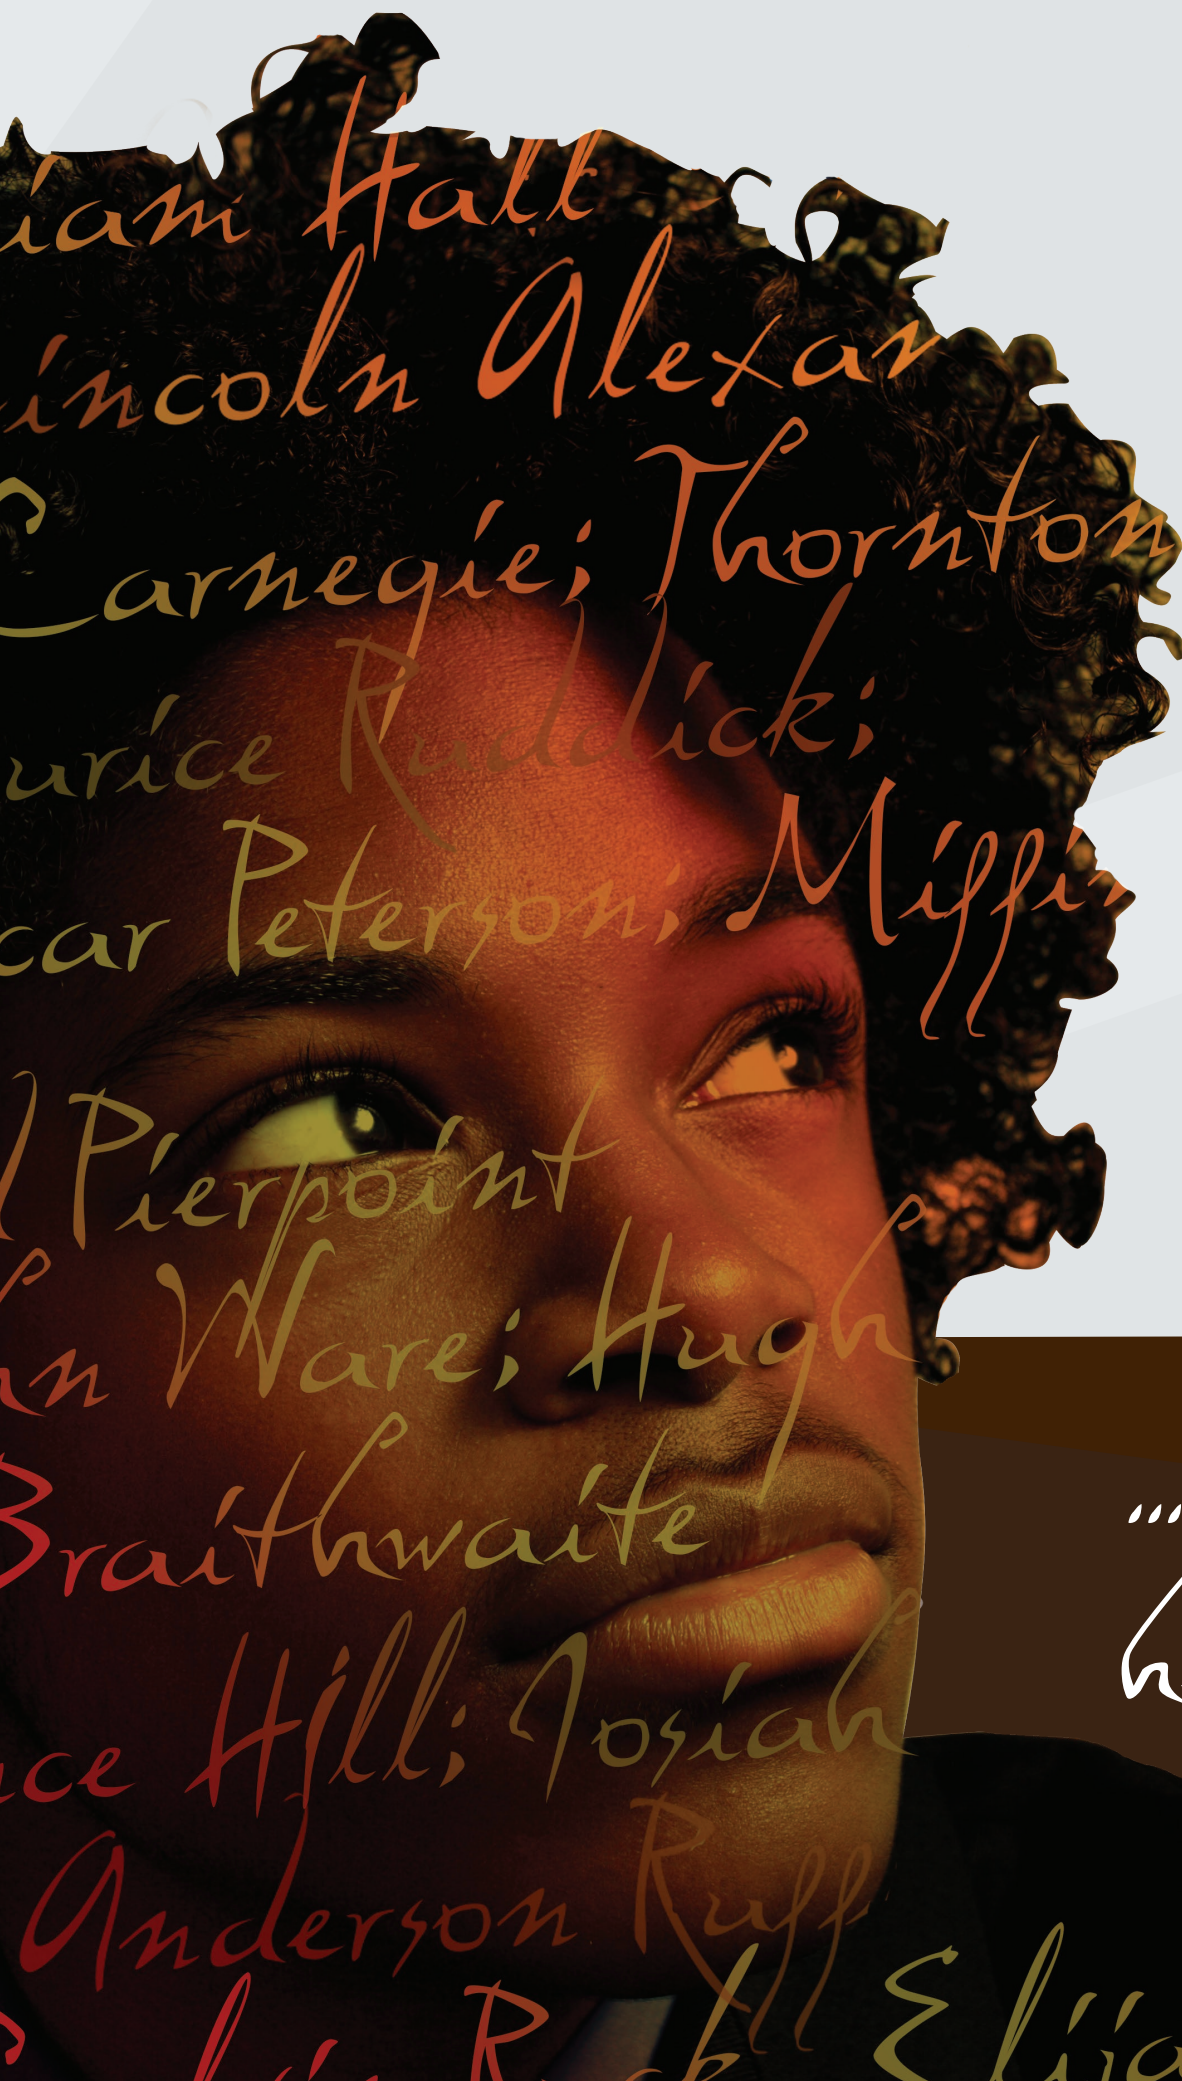 iam Hall
incoln Alexan
Carnegie; Thornton
urice Ruddick;
car Peterson; Miffli
l Pierpoint
hn Ware; Hugh
Braithwaite
nce Hill; Josiah
Anderson Ruff
Elija